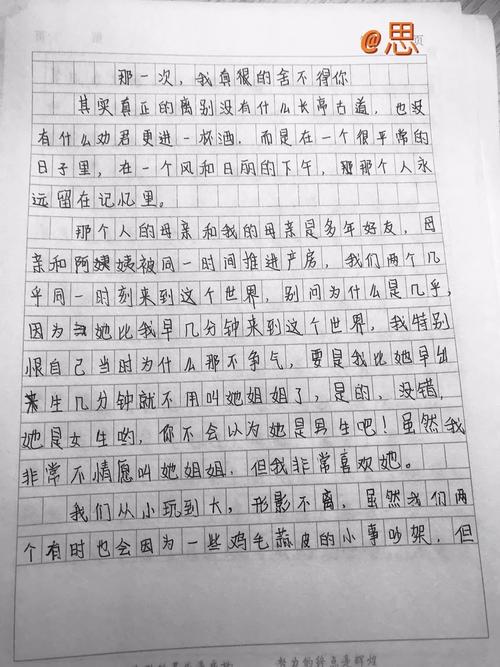 @思
页
那一次，我真很的舍不得你
其实真正的离别没有什么长亭古道，也没
有什么劝君更进一杯酒，而是在一个很平常的
日子里，在一个风和日丽的下午，那个人永
远留在记忆里。
那个人的母亲和我的母亲是多年好友，母
亲和阿姨被同一时间推进产房，我们两个几
乎同一时刻来到这个世界，别问为什么是几乎，
因为她比我早几分钟来到这个世界，我特别
恨自己当时为什么那不争气，要是我比她早出
来生几分钟就不用叫她姐姐了，是的，没错，
她是女生哟，你不会以为她是男生吧！虽然我
非常不情愿叫她姐姐，但我非常喜欢她。
我们从小玩到大，形影不离，虽然我们两
个有时也会因为一些鸡毛蒜皮的小事吵架，但
努力的终点是辉煌